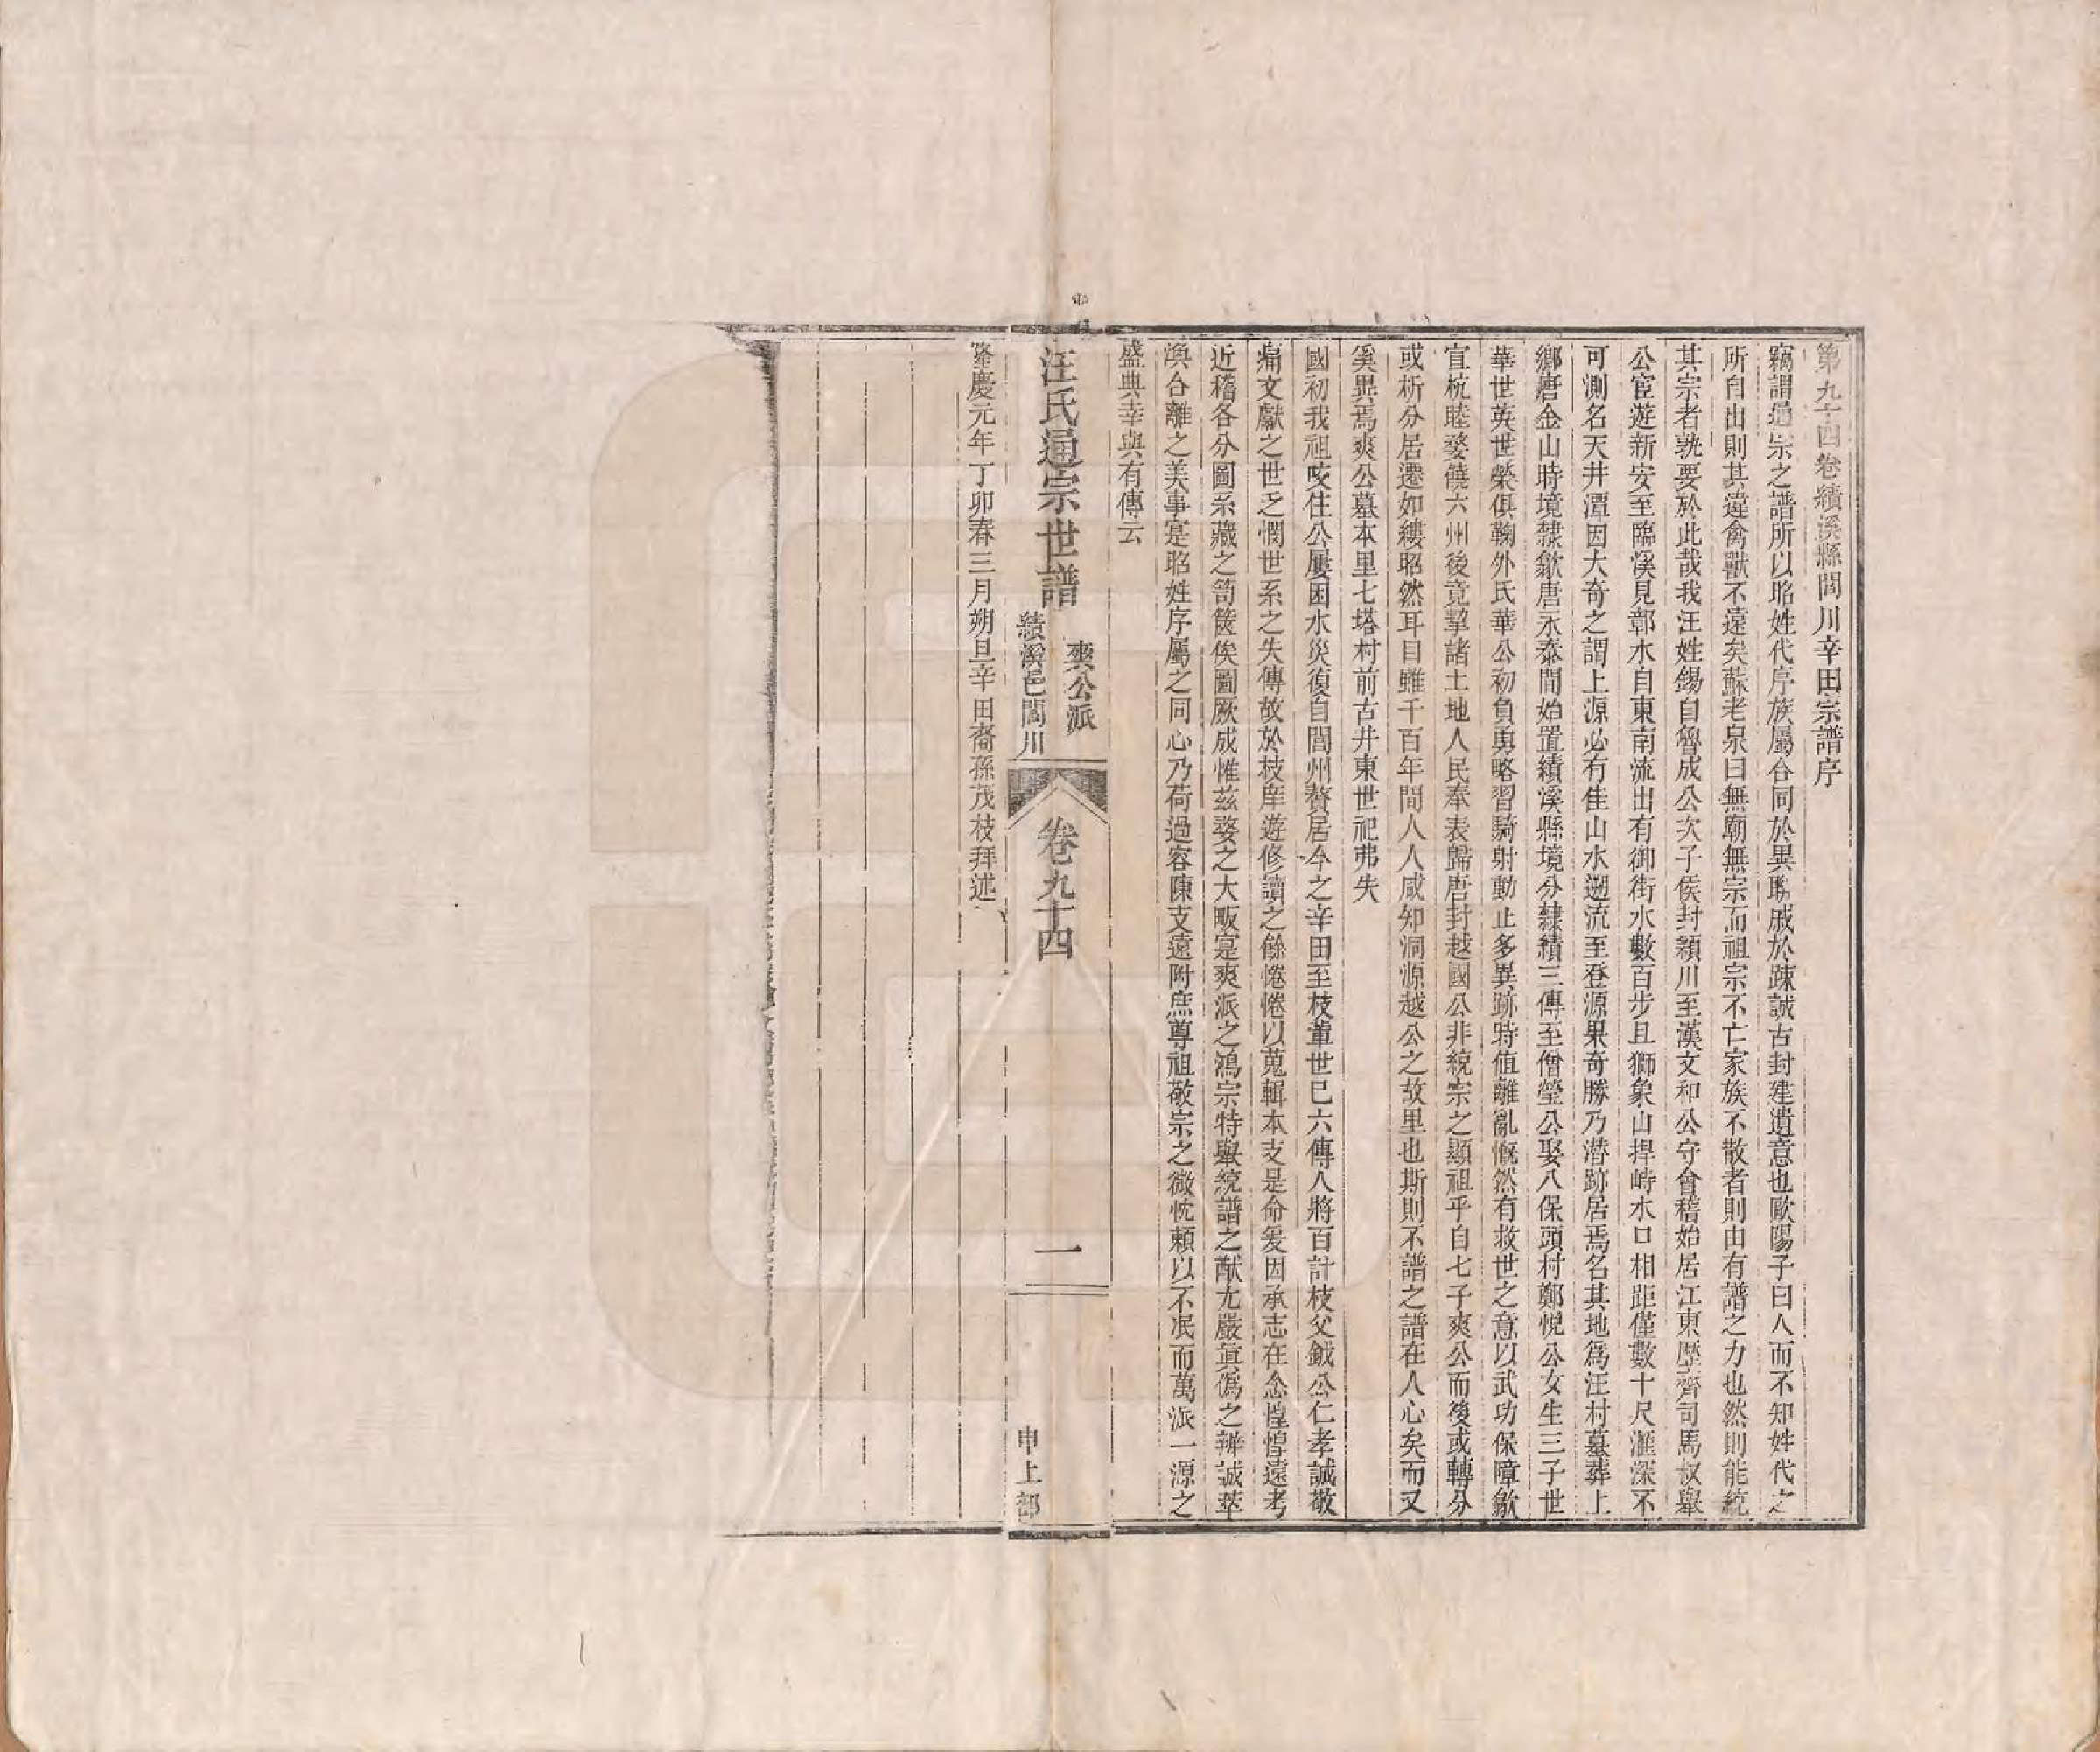 第九十四卷績溪縣閭川辛田宗譜序
竊謂通宗之譜所以昭姓代序族屬合同於異聯戚於疎誠古封建遺意也歐陽子曰人而不知姓代之
所自出則其違禽獸不遠矣蘇老泉曰無廟無宗而祖宗不亡家族不散者則由有譜之力也然則能統
其宗者孰要於此哉我汪姓錫自魯成公次子侯封潁川至漢文和公守會稽始居江東歷齊司馬叔舉
公宦遊新安至臨溪見鄣水自東南流出有御街水數百步且獅象山捍峙水口相距僅數十尺滙深不
可測名天井潭因大奇之謂上源必有佳山水遡流至登源果奇勝乃潛跡居焉名其地為汪村墓葬上
鄉唐金山時境隸歙唐永泰間始置績溪縣境分隸績三傳至僧瑩公娶八保頭村鄭悅公女生三子世
華世英世榮俱鞠外氏華公初負勇略習騎射動止多異跡時值離亂慨然有救世之意以武功保障歙
宣杭睦婺饒六州後竟挈諸土地人民奉表歸唐封越國公非統宗之顯祖乎自七子爽公而後或轉分
或析分居遷如縷昭然耳目雖千百年間人人咸知洞源越公之故里也斯則不譜之譜在人心矣而又
奚異焉爽公墓本里七塔村前古井東世祀弗失
國初我祖咬住公屢困水災復自閭州贅居今之辛田至枝輩世已六傳人將百計枝父鉞公仁孝誠敬
痛文獻之世乏憫世系之失傳故於枝庠遊修讀之餘惓惓以蒐輯本支是命爰因承志在念惶惶遠考
近稽各分圖系藏之笥篋俟圖厥成惟茲婺之大畈寔爽派之鴻宗特舉統譜之猷尤嚴眞偽之辨誠萃
渙合離之美事寔昭姓序屬之同心乃荷過容陳支遠附庶尊祖敬宗之微忱賴以不泯而萬派一源之
盛典幸與有傳云
汪氏通宗世譜
爽公派
績溪邑閭川
卷九十四
一
申上部
隆慶元年丁卯春三月朔旦辛田裔孫茂枝拜述